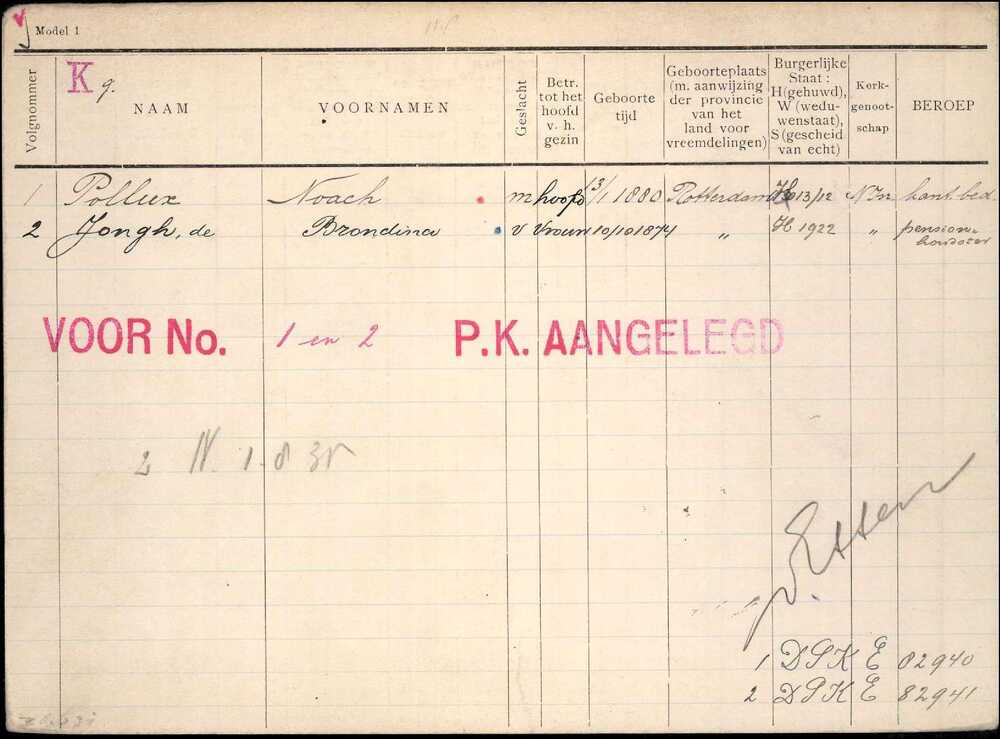 Model 1
K g.
Volgnommer
NAAM
VOORNAMEN
Geslacht
Betr. tot het hoofd v. h. gezin
Geboorte tijd
Geboorteplaats (m. aanwijzing der provincie van het land voor vreemdelingen)
Burgerlijke Staat: H (gehuwd), W (weduwenstaat), S (gescheid van echt)
Kerkgenootschap
BEROEP
1 Pollux Noach m hoofd 13/1 1880 Rotterdam 13/12 N In kant. bed.
2 Jongh, de Brondina v Vrouw 10/10 1874 „ H 1922 „ pensionhoudster
VOOR No. 1 en 2 P.K. AANGELEGD
v Etten
1 DPK E 82940
2 DPK E 82941